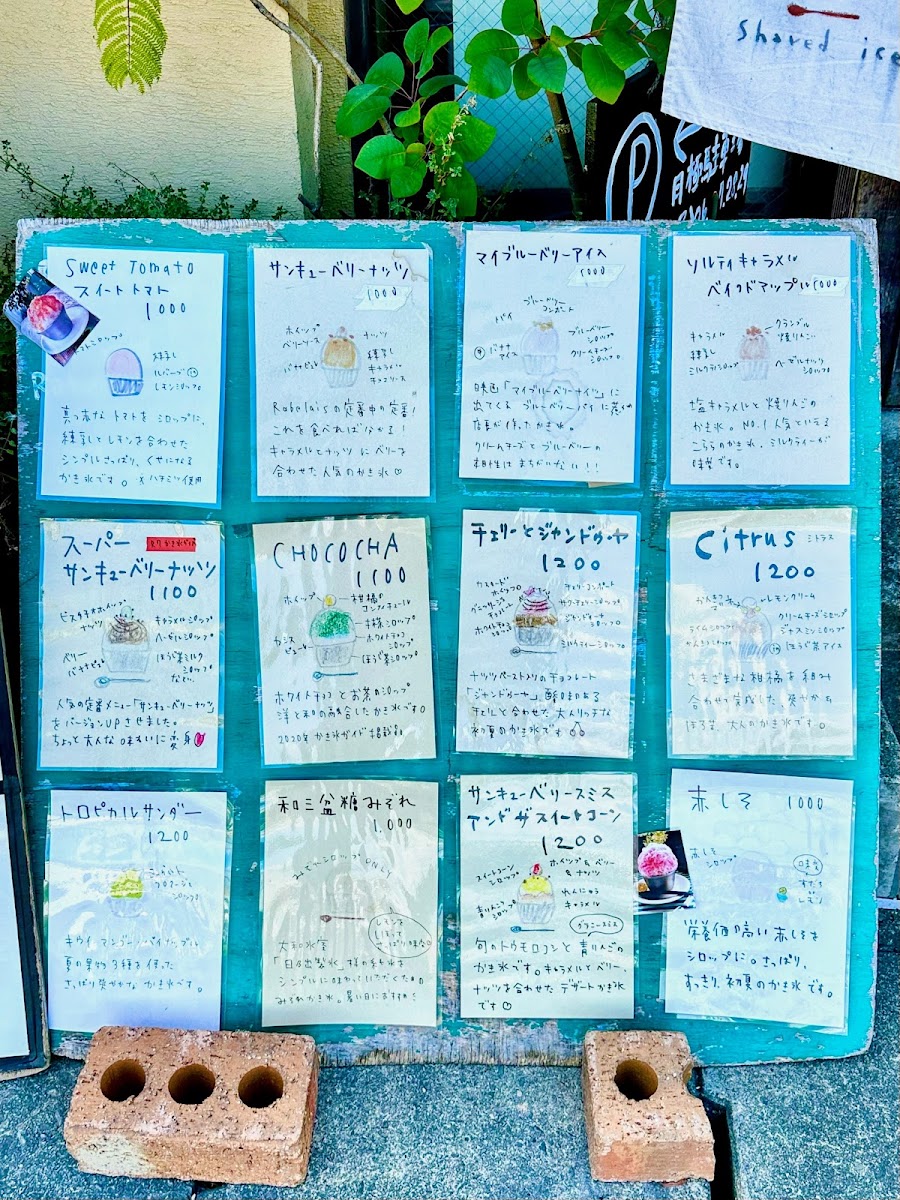 Shaved ice
P
月極駐車場
Sweet Tomato
スイートトマト
1000
練乳
レモンシロップ
真っ赤な トマトを シロップに、
練乳とレモンを合わせた
シンプルさっぱり、くせになる
かき氷です。
ハチミツ使用
サンキューベリーナッツ
1000
ホイップ
ベリーソース
ナッツ
練乳
キャラメル
チョコソース
Rabelaisの定番中の定番!
これを食べれば分かる!
キャラメルとナッツ にベリーを
合わせた人気のかき氷♡
マイブルーベリーアイス
1000
ブルーベリー
コンポート
パイ
バナナ
アイス
ブルーベリー
シロップ
クリームチーズ
シロップ
映画「マイブルーベリーナイツ」に
出てくる ブルーベリーパイ に
店主が作ったかき氷。
クリームチーズ と ブルーベリーの
相性は まちがいない!!
ソルティキャラメル
ベイクドアップル
1000
キャラメル
練乳
ミルクティシロップ
クランブル
焼りんご
ヘーゼルナッツ
シロップ
塩キャラメルと 焼りんごの
かき氷。NO.1 人気といえる
こちらのかき氷、ミルクティーが
スーパー
サンキューベリーナッツ
1100
ピスタチオホイップ
ナッツ
ベリー
キャラメルシロップ
ヘーゼルシロップ
ほうじ茶ミルク
シロップ
人気の定番メニュー「サンキューベリーナッツ」
をバージョンUPさせました。
ちょっと大人な味わいに変身
CHOCOCHA
1100
ホイップ
柑橘の
コンフィチュール
カシス
ピューレ
抹茶シロップ
ホワイトチョコ
シロップ
ほうじ茶シロップ
ホワイトチョコ とお茶のシロップ
洋と和の融合したかき氷です。
2020年 かき氷ガイド掲載
チェリーとジャンドゥーヤ
1200
カスタード
ホイップ
チェリーコンポート
サワーチェリーシロップ
ジャンドゥーヤ
シロップ
ミルクティーシロップ
ナッツペースト入りのチョコレート
「ジャンドゥーヤ」酸味のある
チェリーと合わせた 大人リッチな
初夏のかき氷です
Citrus シトラス
1200
レモンクリーム
クリームチーズシロップ
ジャスミンシロップ
ほうじ茶アイス
ライムシロップ
さまざまな 柑橘を 組み
合わせて完成した、爽やかな
大人のかき氷です。
トロピカルサンダー
1200
シロップ
キウイ、マンゴー、パイナップル、
夏の果物 3種を使った
さっぱり爽やかな かき氷です。
和三盆糖みぞれ
1,000
みぞれシロップ ONLY
レモンを
しぼって
さっぱり味
「日乃出製氷」様の
シンプルに
みぞれかき氷。暑い日におすすめ!
サンキューベリースミス
アンド ザスイートコーン
1200
スイートコーン
シロップ
青りんご
シロップ
ホイップ & ベリー
& ナッツ
れんにゅう
キャラメル
グラニースミス
旬のトウモロコシと 青りんごの
かき氷です。キャラメルとベリー、
ナッツを合わせた デザートかき氷
です
赤しそ 1000
赤しそ
シロップ
すだち
レモン
栄養価の高い 赤しそを
シロップに。さっぱり、
すっきり、初夏のかき氷 です。